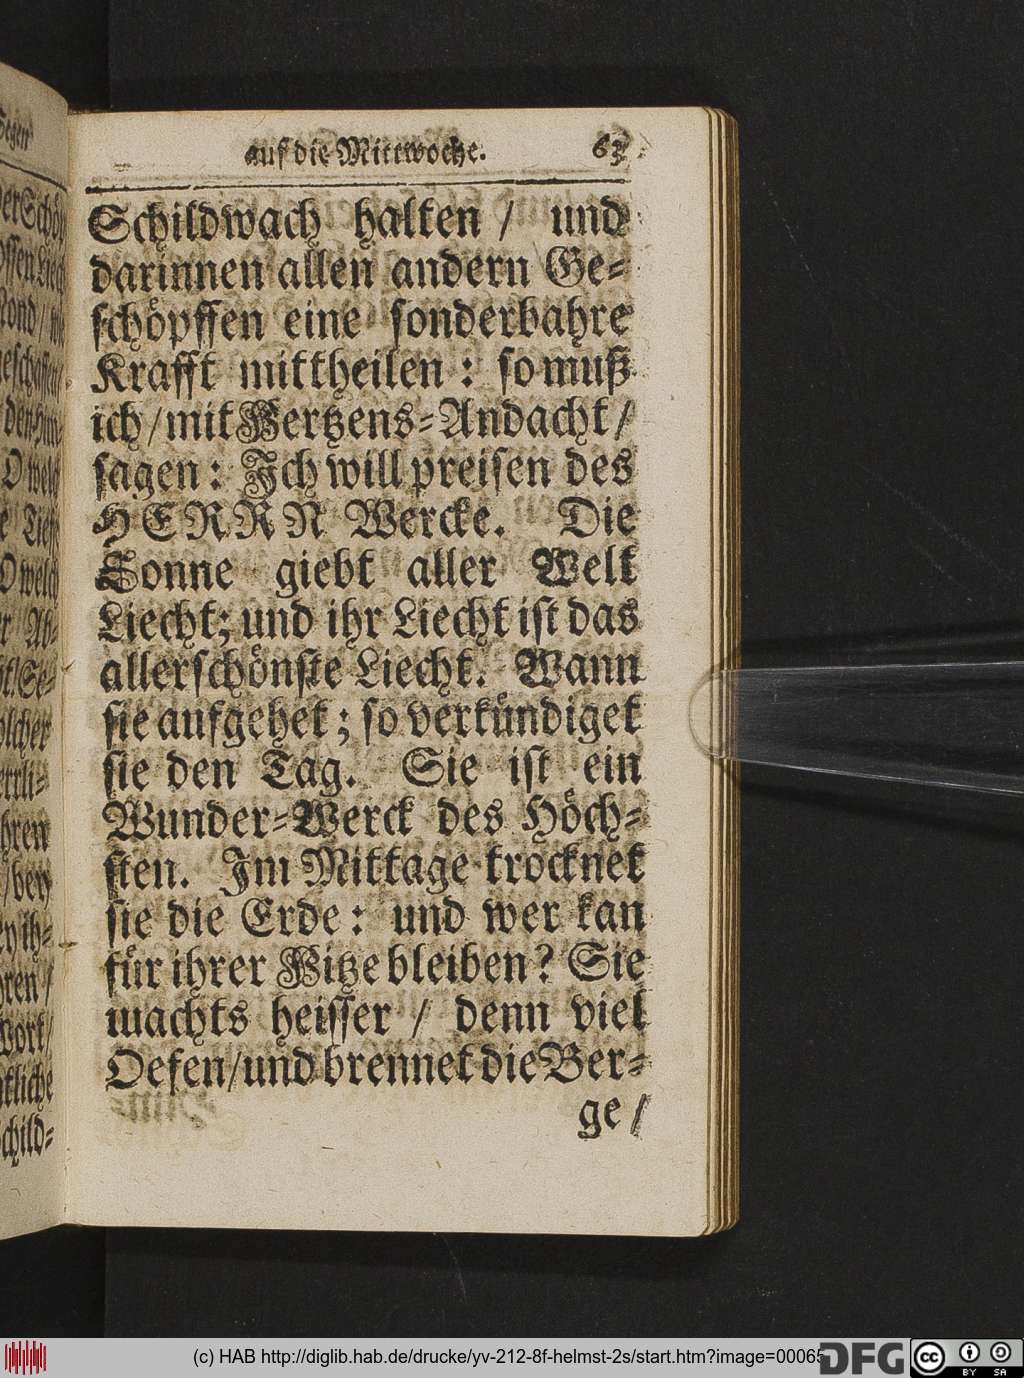 auf die Mittwoche. 63
Schildwach halten / und
darinnen allen andern Ge-
schöpffen eine sonderbahre
Krafft mittheilen : so muß
ich / mit Hertzens-Andacht /
sagen : Ich will preisen des
HERRN Wercke. Die
Sonne giebt aller Welt
Liecht; und ihr Liecht ist das
allerschönste Liecht. Wann
sie aufgehet ; so verkündiget
sie den Tag. Sie ist ein
Wunder-Werck des Höch-
sten. Im Mittage trocknet
sie die Erde : und wer kan
für ihrer Hitze bleiben? Sie
machts heisser / denn viel
Oefen / und brennet die Ber-
ge /
(c) HAB http://diglib.hab.de/drucke/yv-212-8f-helmst-2s/start.htm?image=00065
DFG
cc BY SA